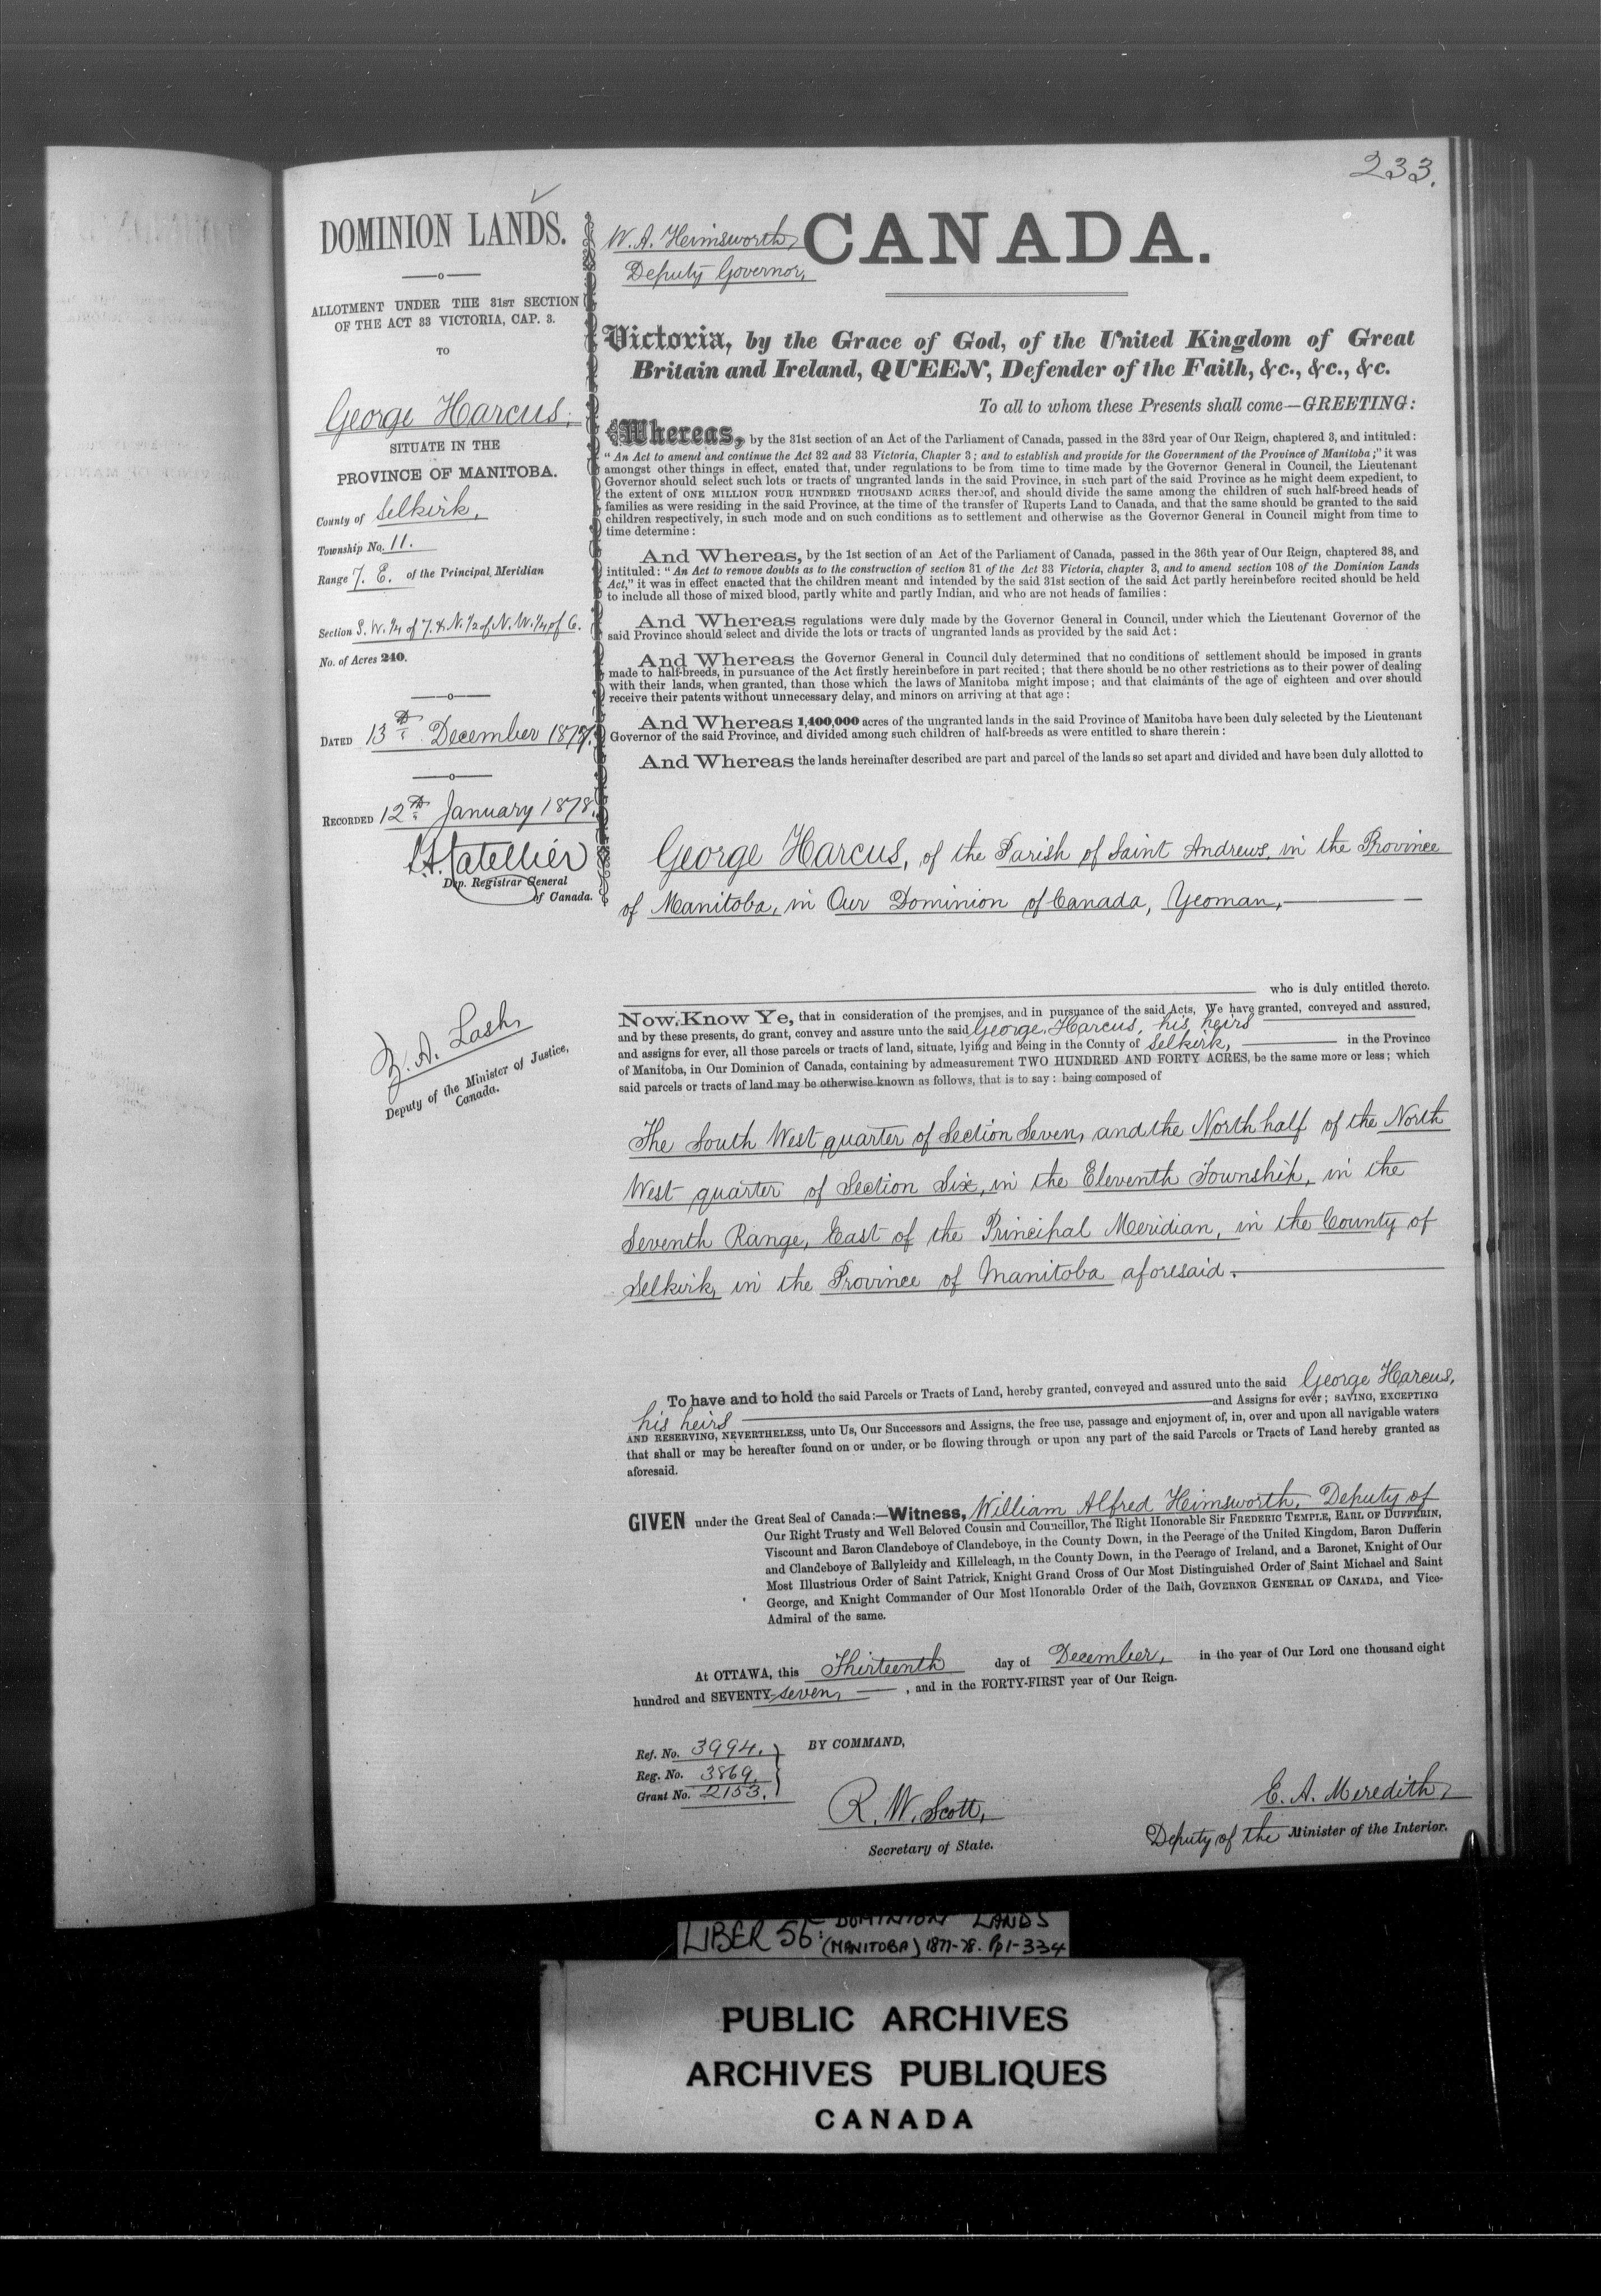 233.
DOMINION LANDS.
ALLOTMENT UNDER THE 31ST SECTION
OF THE ACT 33 VICTORIA, CAP. 3.
TO
George Harcus,
SITUATE IN THE
PROVINCE OF MANITOBA.
County of Selkirk,
Township No. 11.
Range 7. E. of the Principal Meridian
Section S. W. 1/4 of 7. & N. 1/2 of N. W. 1/4 of 6.
No. of Acres 240.
DATED 13th December 1877.
RECORDED 12th January 1878.
Dep. Registrar General
of Canada.
Z. A. Lash,
Deputy of the Minister of Justice,
Canada.
W. A. Himsworth,
Deputy Governor,
CANADA.
Victoria, by the Grace of God, of the United Kingdom of Great
Britain and Ireland, QUEEN, Defender of the Faith, &c., &c., &c.
To all to whom these Presents shall come—GREETING:
Whereas, by the 31st section of an Act of the Parliament of Canada, passed in the 33rd year of Our Reign, chaptered 3, and intituled:
"An Act to amend and continue the Act 32 and 33 Victoria, Chapter 3; and to establish and provide for the Government of the Province of Manitoba;" it was
amongst other things in effect, enated that, under regulations to be from time to time made by the Governor General in Council, the Lieutenant
Governor should select such lots or tracts of ungranted lands in the said Province, in such part of the said Province as he might deem expedient, to
the extent of ONE MILLION FOUR HUNDRED THOUSAND ACRES thereof, and should divide the same among the children of such half-breed heads of
families as were residing in the said Province, at the time of the transfer of Ruperts Land to Canada, and that the same should be granted to the said
children respectively, in such mode and on such conditions as to settlement and otherwise as the Governor General in Council might from time to
time determine:
And Whereas, by the 1st section of an Act of the Parliament of Canada, passed in the 36th year of Our Reign, chaptered 38, and
intituled: "An Act to remove doubts as to the construction of section 31 of the Act 33 Victoria, chapter 3, and to amend section 108 of the Dominion Lands
Act," it was in effect enacted that the children meant and intended by the said 31st section of the said Act partly hereinbefore recited should be held
to include all those of mixed blood, partly white and partly Indian, and who are not heads of families:
And Whereas regulations were duly made by the Governor General in Council, under which the Lieutenant Governor of the
said Province should select and divide the lots or tracts of ungranted lands as provided by the said Act:
And Whereas the Governor General in Council duly determined that no conditions of settlement should be imposed in grants
made to half-breeds, in pursuance of the Act firstly hereinbefore in part recited; that there should be no other restrictions as to their power of dealing
with their lands, when granted, than those which the laws of Manitoba might impose; and that claimants of the age of eighteen and over should
receive their patents without unnecessary delay, and minors on arriving at that age:
And Whereas 1,400,000 acres of the ungranted lands in the said Province of Manitoba have been duly selected by the Lieutenant
Governor of the said Province, and divided among such children of half-breeds as were entitled to share therein:
And Whereas the lands hereinafter described are part and parcel of the lands so set apart and divided and have been duly allotted to
George Harcus, of the Parish of Saint Andrews, in the Province
of Manitoba, in Our Dominion of Canada, Yeoman,
who is duly entitled thereto.
Now Know Ye, that in consideration of the premises, and in pursuance of the said Acts, We have granted, conveyed and assured,
and by these presents, do grant, convey and assure unto the said George Harcus, his heirs
and assigns for ever, all those parcels or tracts of land, situate, lying and being in the County of Selkirk, in the Province
of Manitoba, in Our Dominion of Canada, containing by admeasurement TWO HUNDRED AND FORTY ACRES, be the same more or less; which
said parcels or tracts of land may be otherwise known as follows, that is to say: being composed of
The South West quarter of Section Seven, and the North half of the North
West quarter of Section Six, in the Eleventh Township, in the
Seventh Range, East of the Principal Meridian, in the County of
Selkirk, in the Province of Manitoba aforesaid.
To have and to hold the said Parcels or Tracts of Land, hereby granted, conveyed and assured unto the said George Harcus,
his heirs and Assigns for ever; SAVING, EXCEPTING
AND RESERVING, NEVERTHELESS, unto Us, Our Successors and Assigns, the free use, passage and enjoyment of, in, over and upon all navigable waters
that shall or may be hereafter found on or under, or be flowing through or upon any part of the said Parcels or Tracts of Land hereby granted as
aforesaid.
GIVEN under the Great Seal of Canada:—Witness, William Alfred Himsworth, Deputy of
Our Right Trusty and Well Beloved Cousin and Councillor, The Right Honorable Sir FREDERIC TEMPLE, EARL OF DUFFERIN,
Viscount and Baron Clandeboye of Clandeboye, in the County Down, in the Peerage of the United Kingdom, Baron Dufferin
and Clandeboye of Ballyleidy and Killeleagh, in the County Down, in the Peerage of Ireland, and a Baronet, Knight of Our
Most Illustrious Order of Saint Patrick, Knight Grand Cross of Our Most Distinguished Order of Saint Michael and Saint
George, and Knight Commander of Our Most Honorable Order of the Bath, GOVERNOR GENERAL OF CANADA, and Vice-
Admiral of the same.
At OTTAWA, this Thirteenth day of December, in the year of Our Lord one thousand eight
hundred and SEVENTY-seven, and in the FORTY-FIRST year of Our Reign.
Ref. No. 3994.
Reg. No. 3869.
Grant No. 2153.
BY COMMAND,
R. W. Scott,
Secretary of State.
E. A. Meredith,
Deputy of the Minister of the Interior.
LIBER 56: DOMINION LANDS
(MANITOBA) 1877-78. Pp 1-334
PUBLIC ARCHIVES
ARCHIVES PUBLIQUES
CANADA